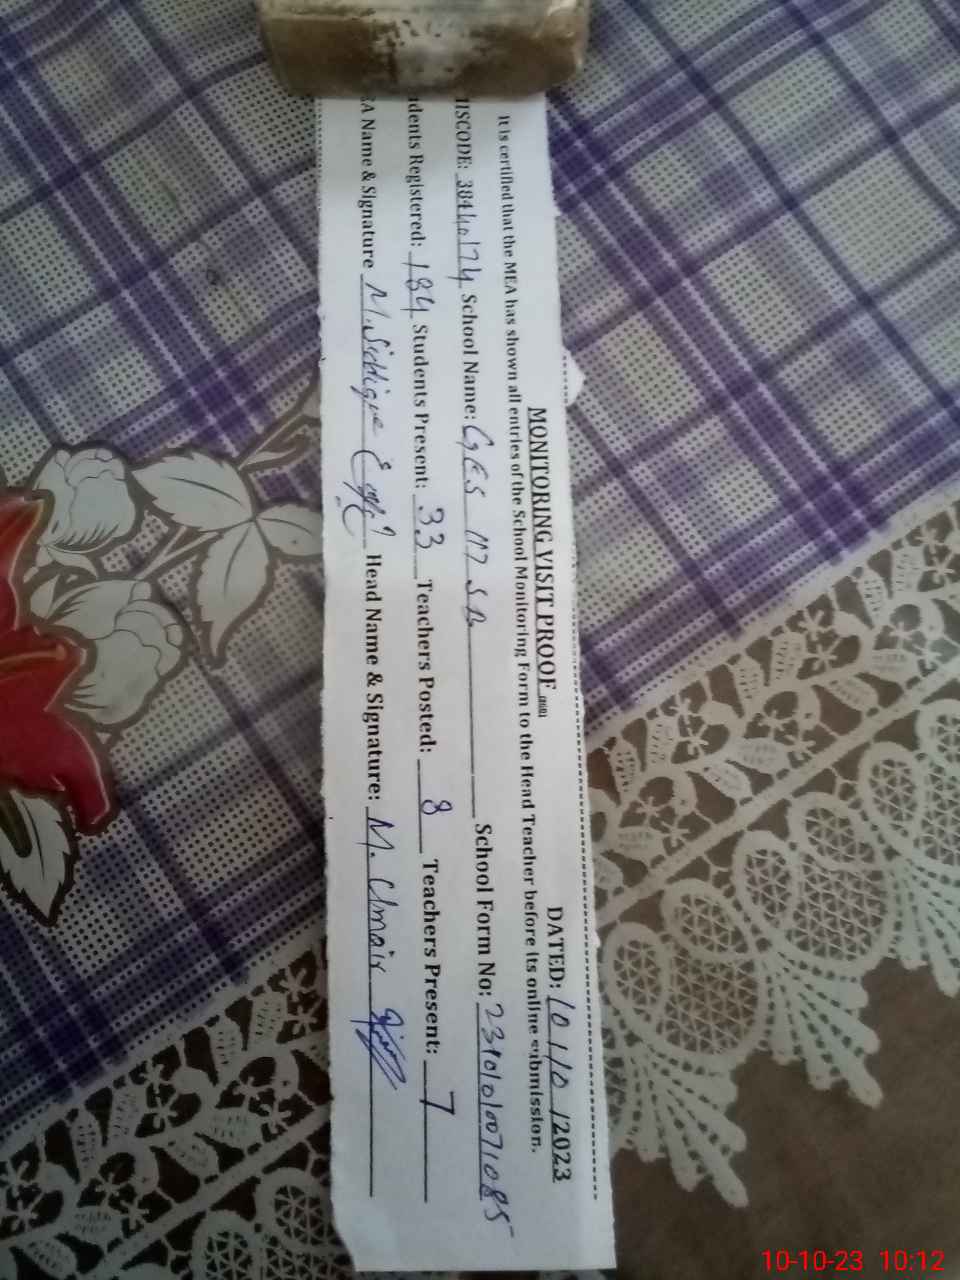 MONITORING VISIT PROOF DATED: 10/10/2023
It is certified that the MEA has shown all entries of the School Monitoring Form to the Head Teacher before its online submission.
ISCODE: 38440174 School Name: GES 117 SB School Form No:
dents Registered: 184 Students Present: 33 Teachers Posted: 8 Teachers Present: 7
A Name & Signature M. Siddique Head Name & Signature: M. Umair
10-10-23 10:12